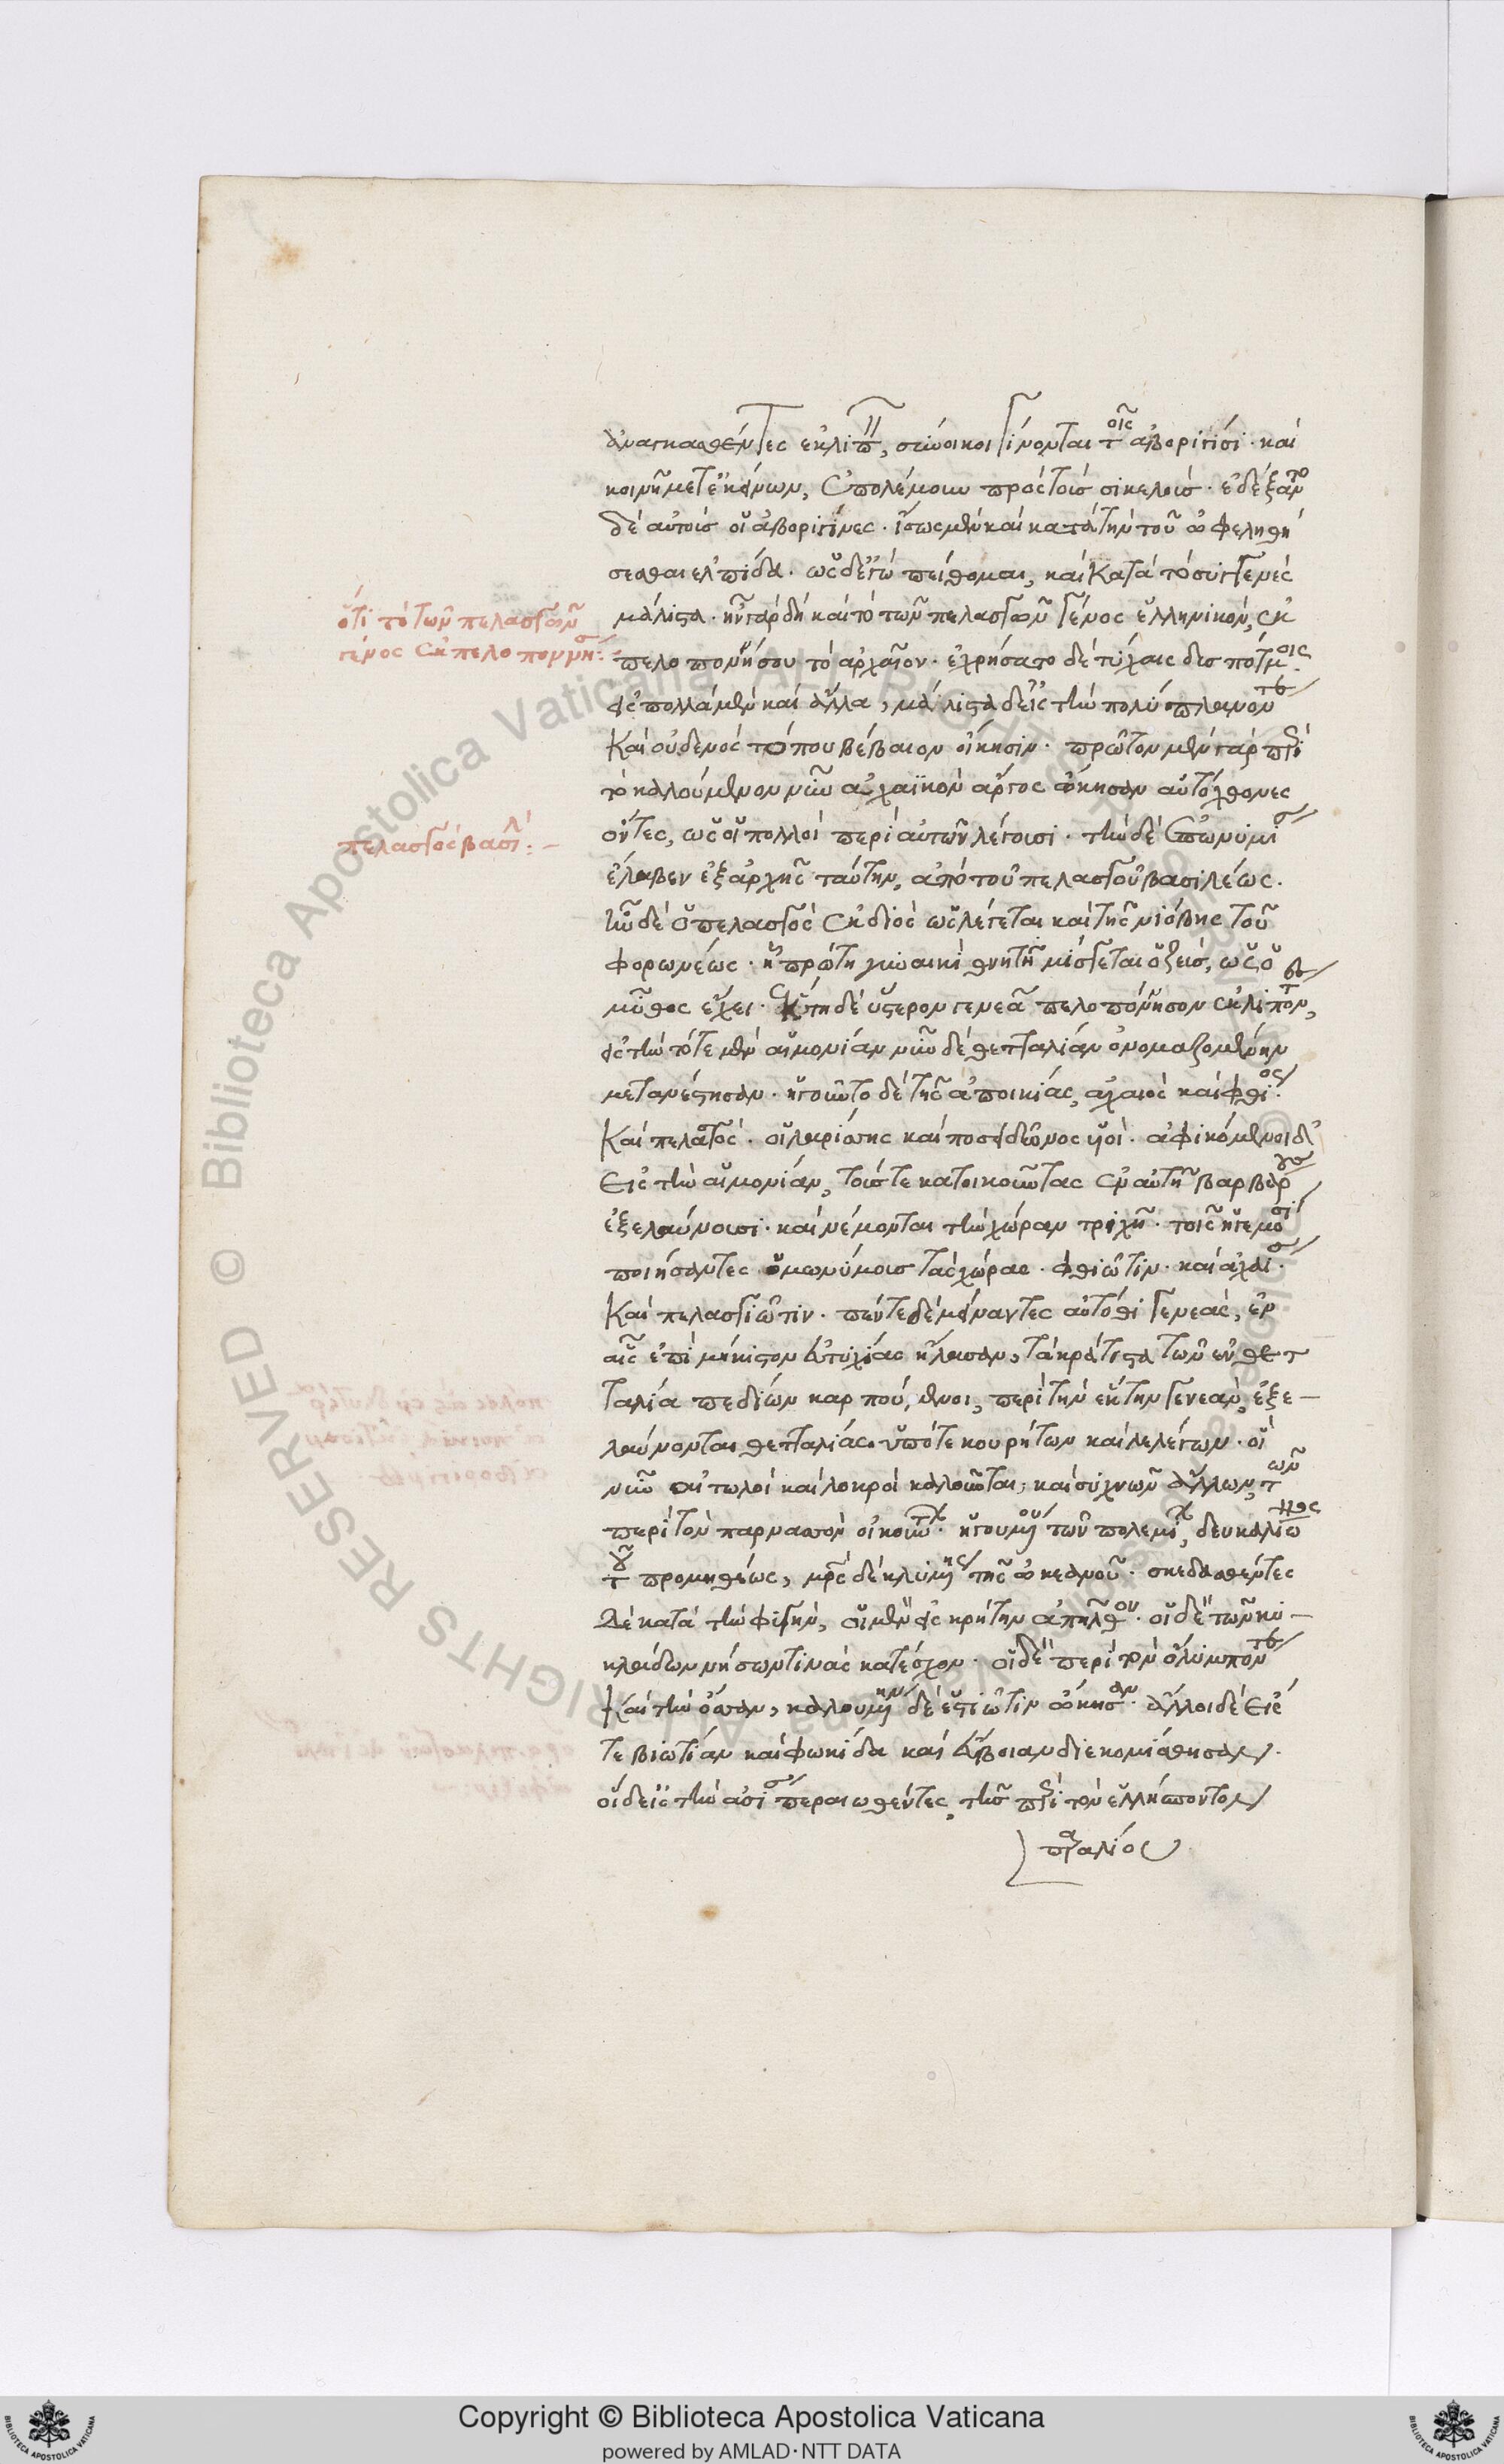 ἀναγκασθέντες ἐκλιπεῖν, σύνοικοι γίνονται τοῖς ἀβοριγῖσι· καὶ
κοινῇ μετ' ἐκείνων, ἐπολέμουν πρὸς τοὺς σικελούς· ἐδέξαντο
δὲ αὐτοὺς οἱ ἀβοριγῖνες· ἴσως μὲν καὶ κατὰ τὴν τοῦ ὠφεληθή
σεσθαι ἐλπίδα· ὡς δ' ἐγὼ πείθομαι, καὶ κατὰ τὸ συγγενὲς
ὅτι τὸ τῶν πελασγῶν
γένος ἐκ πελοποννήσ:
μάλιστα· ἦν γὰρ δὴ καὶ τὸ τῶν πελασγῶν γένος ἑλληνικόν, ἐκ
πελοποννήσου τὸ ἀρχαῖον· ἐχρήσατο δὲ τύχαις δυσπότμοις·
εἰς πολλὰ μὲν καὶ ἄλλα, μάλιστα δ' εἰς τὴν πολύπλανον τε
καὶ οὐδενὸς τόπου βέβαιον οἴκησιν· πρῶτον μὲν γὰρ περὶ
τὸ καλούμενον νῦν ἀχαϊκὸν ἄργος ᾤκησαν αὐτόχθονες
ὄντες, ὡς οἱ πολλοὶ περὶ αὐτῶν λέγουσι· τὴν δὲ ἐπωνυμίαν
πελασγὸς βασιλ:-
ἔλαβεν ἐξ ἀρχῆς ταύτην, ἀπὸ τοῦ πελασγοῦ βασιλέως.
ἦν δὲ ὁ πελασγὸς ἐκ διὸς ὡς λέγεται καὶ τῆς νιόβης τοῦ
φορωνέως· ᾗ πρώτῃ γυναικὶ θνητῇ μίσγεται ὁ ζεύς, ὡς ὁ
μῦθος ἔχει· ἕκτῃ δὲ ὕστερον γενεᾷ πελοπόννησον ἐκλιπόντες,
εἰς τὴν τότε μὲν αἱμονίαν νῦν δὲ θετταλίαν ὀνομαζομένην
μετανέστησαν· ἡγοῦντο δὲ τῆς ἀποικίας, ἀχαιὸς καὶ φθῖος·
καὶ πελασγός· οἱ λαρίσσης καὶ ποσειδῶνος υἱοί· ἀφικόμενοι δ'
εἰς τὴν αἱμονίαν, τούς τε κατοικοῦντας ἐν αὐτῇ βαρβάρους
ἐξελαύνουσι· καὶ νέμονται τὴν χώραν τριχῇ· τοῖς ἡγεμόσι
ποιήσαντες ὁμωνύμους τὰς χώρας· φθιῶτιν· καὶ ἀχαΐαν·
καὶ πελασγιῶτιν· πέντε δὲ μείναντες αὐτόθι γενεάς, ἐν
αἷς ἐπὶ μήκιστον εὐτυχίας ἤλασαν, τὰ κράτιστα τῶν ἐν θετ
ταλίᾳ πεδίων καρπούμενοι, περὶ τὴν ἕκτην γενεὰν, ἐξε-
λαύνονται θετταλίας ὑπό τε κουρήτων καὶ λελέγων· οἳ
νῦν αἰτωλοὶ καὶ λοκροὶ καλοῦνται, καὶ συχνῶν ἄλλων, τῶν
περὶ τὸν παρνασσὸν οἰκούντων· ἡγουμένου τῶν πολεμίων, δευκαλίωνος
τοῦ προμηθέως, μητρὸς δὲ κλυμένης τῆς ὠκεανοῦ· σκεδασθέντες
δὲ κατὰ τὴν φυγὴν, οἱ μὲν εἰς κρήτην ἀπῆλθον· οἱ δὲ τῶν κυ-
κλάδων νήσων τινὰς κατέσχον· οἱ δὲ περὶ τὸν ὄλυμπόν τε
καὶ τὴν ὄσσαν, καλουμένην δὲ ἑστιῶτιν ᾤκησαν· ἄλλοι δὲ εἴς
τε βιωτίαν καὶ φωκίδα καὶ εὔβοιαν διεκομίσθησαν.
οἱ δ' εἰς τὴν ἀσίαν περαιωθέντες, τῆς περὶ τὸν ἑλλήσποντον
παραλίου